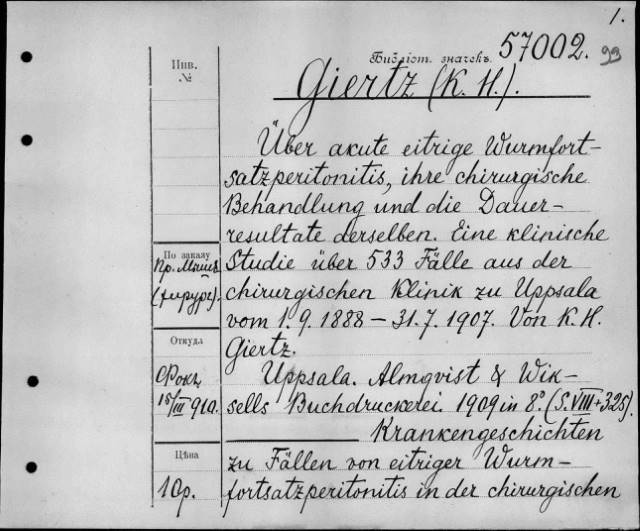 1.
Библіот. значекъ 57002. 93
Инв.
№
Giertz (K. H.).
Über akute eitrige Wurmfort-
satzperitonitis, ihre chirurgische
Behandlung und die Dauer-
resultate derselben. Eine klinische
По заказу
Studie über 533 Fälle aus der
chirurgischen Klinik zu Uppsala
vom 1. 9. 1888 – 31. 7. 1907. Von K. H.
Giertz.
Откуда
Uppsala. Almqvist & Wik-
sells Buchdruckerei 1909 in 8° (S. VIII + 325).
15/III 910.
Krankengeschichten
Цѣна
zu Fällen von eitriger Wurm-
fortsatzperitonitis in der chirurgischen
10р.